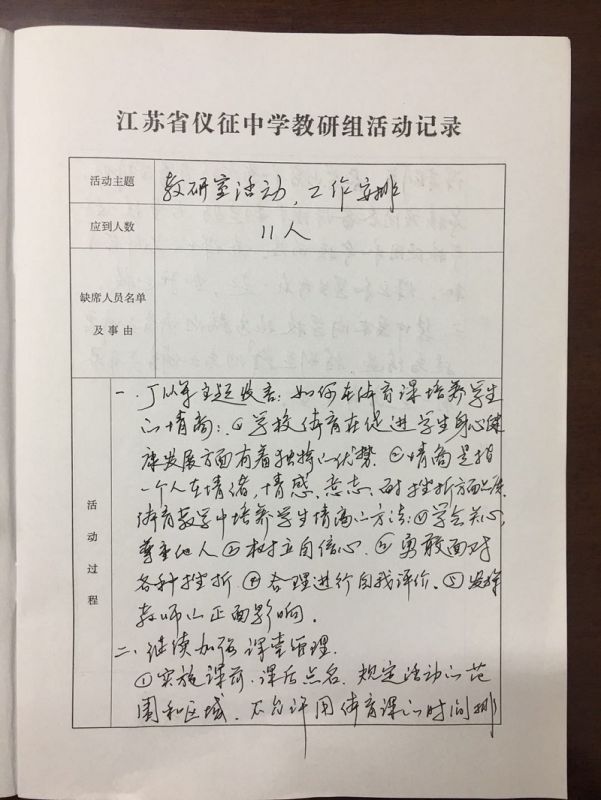 江苏省仪征中学教研组活动记录
活动主题
教研室活动，工作安排
应到人数
11人
缺席人员名单
及事由
活动过程
一．丁以军主题发言：如何在体育课培养学生
的情商：①学校体育在促进学生身心健
康发展方面有着独特的优势．②情商是指
一个人在情绪，情感、意志、耐挫折方面
体育教学中培养学生情商的方法：①学会关心，
尊重他人②树立自信心．③勇敢面对
各种挫折．④合理进行自我评价．⑤发挥
教师的正面影响．
二、继续加强课堂管理．
①实施课前、课后点名．规定活动的范
围和区域．不允许用体育课的时间